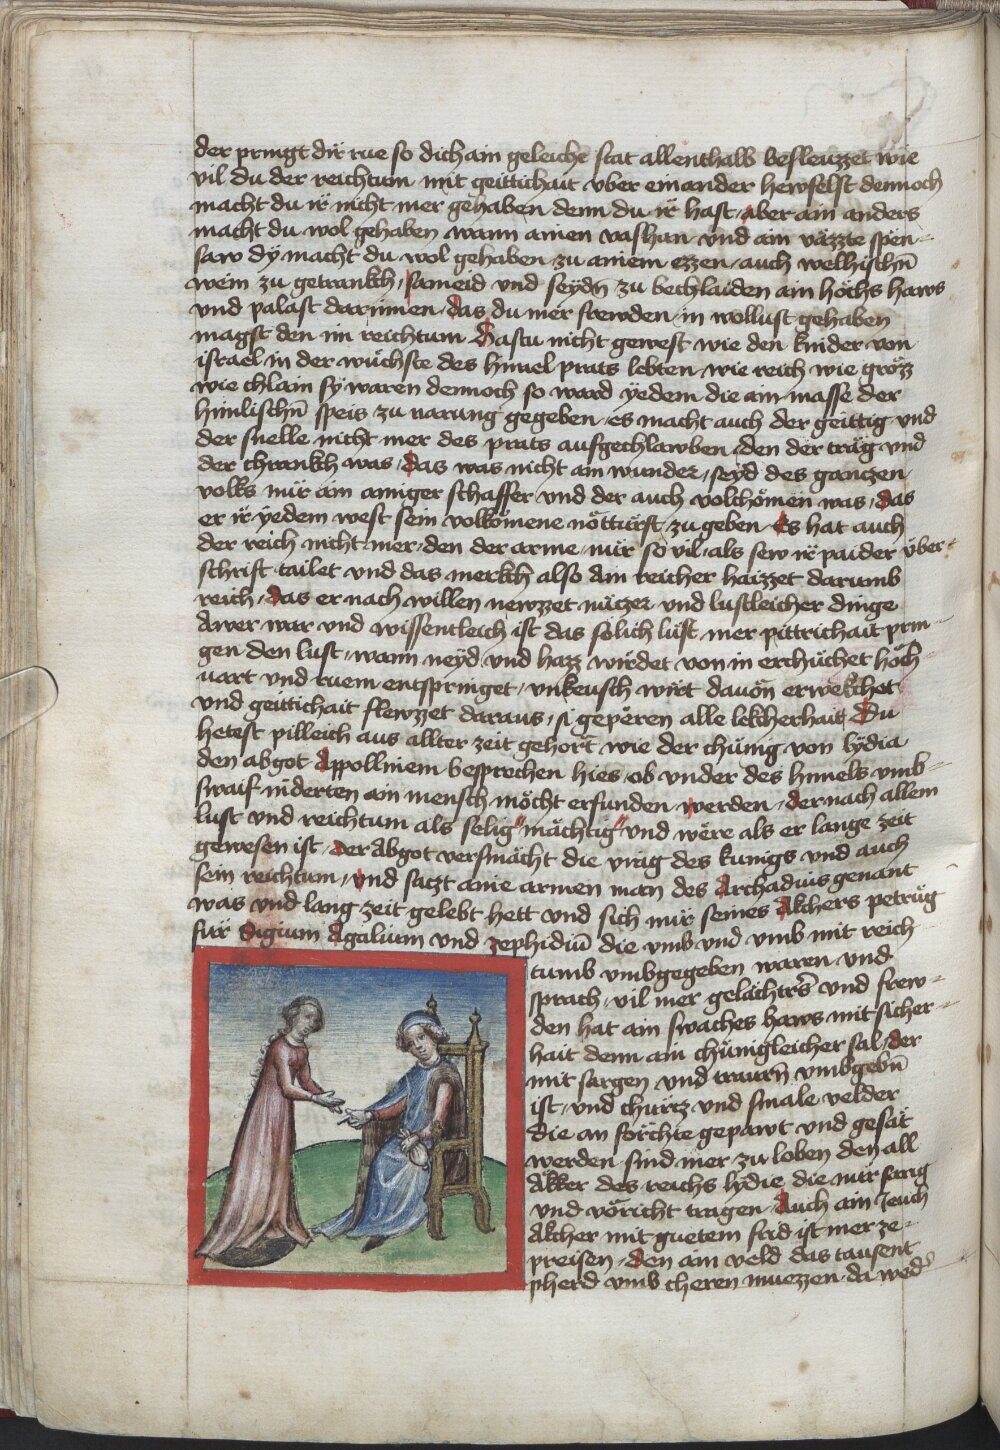 der pringt dir rue so dich ain geleiche stat allenthalb besleuzzet wie
vil du der reichtum mit geittichait vber einander hewfelst dennoch
macht du ir nicht mer gehaben denn du ir hast aber ain anders
macht du wol gehaben wann ainen vashan vnd ain väzzte spen-
saw dÿ macht du wol gehaben zu ainem ezzen auch welhischñ
wein zu getrankch sameid vnd seydñ zu bechlaiden ain höchs haws
vnd palast darinnen das du mer frewden in wollust gehaben
magst den im reichtum Hastu nicht gewest wie den kinder von
israel in der wüchste des himel prats lebten wie reich wie grözz
wie chlain sy waren dennoch so ward yedem die ain masse der
himlischñ speis zu narung gegeben es macht auch der geittig vnd
der snelle nicht mer des prats aufgechlawben den der träg vnd
der chrankch was das was nicht ain wunder seyd des ganczen
volks nür ain ainiger schaffer vnd der auch volchömen was das
er ir yedem west sein volkömene nötturft zu geben Es hat auch
der reich nicht mer den der arme nür so vil als sew ir paider über-
schrift tailet vnd das merkch also Ain reicher haizzet darumb
reich das er nach willen newzzet nüczer vnd lustleicher dinge
Awer war vnd wissentleich ist das sölich lüst mer pittrichait prin-
gen den lust wann neyd vnd hazz wirdet von in erchüchet höch-
uart vnd ruem entspringet vnkeusch wirt dauön erwekchet
vnd geittichait flewzzet daraus si gepëren alle lekcherhait Du
hetest pilleich aus allter zeit gehört wie der chünig von lÿdia
den abgot Appollinem besprechen hies ob vnder des himels vmb-
swaif inderten ain mensch möcht erfunden werden der nach allem
lust vnd reichtum als selig mächtig vnd wëre als er lange zeit
gewesen ist der Abgot versmächt die vrag des kunigs vnd auch
sein reichtum vnd saczt ainē armen man des Archadius genant
was vnd lang zeit gelebt hett vnd sich nür seines Akchers petrüg
für Sigium Agalium vnd zephidiū die vmb vnd vmb mit reich-
tumb vmbgegeben waren vnd
sprach vil mer gelächtrs vnd frew-
den hat ain swaches haws mit sicher-
hait denn ain chünigleicher sal der
mit sargen vnd trawrñ vmbgebñ
ist vnd chürtz vnd smale velder
die an förchte gepawt vnd gesät
werden sind mer zu loben den all
Akker des reichs lydie die nür sarig
vnd vöricht tragen Auch ain Jeuch
Akcher mit guetem frid ist mer ze
preisen den ain veld das tausent
pherd vmb cheren muezzen da wed